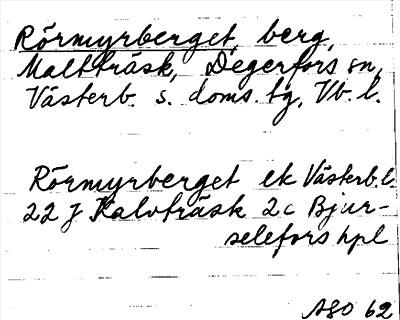 Rörmyrberget, berg,
Maltträsk, Degerfors sn,
Västerb. s. doms. tg, Vb. l.
Rörmyrberget ek Västerb. l.
22 J Kalvträsk 2c Bjur-
selefors hpl
ASO 62